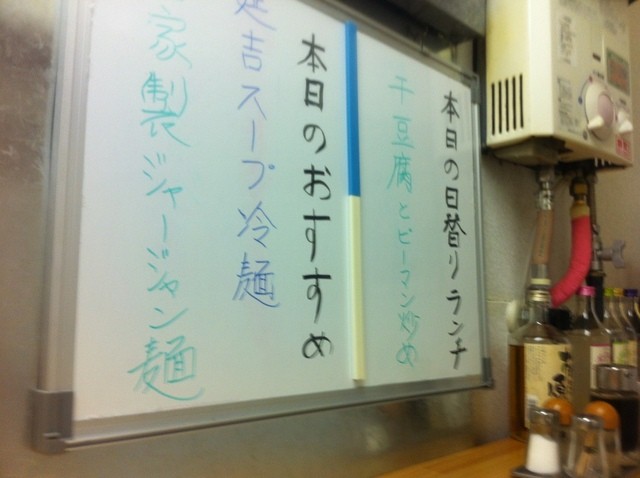 本日の日替りランチ
干豆腐とピーマン炒め
本日のおすすめ
延吉スープ冷麺
家製ジャージャン麺